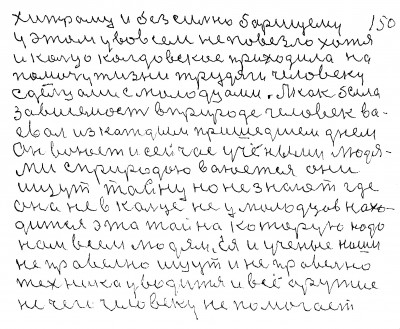 хитрому и безсилно борищему 150
у этом увовсем неповезло хотя
и кольцо колдовское приходила на
помочу жизни трудяги человеку
с отцами с молодцами. Никак была
зависемост в природе человек во-
евал из каждим пришедшем днем
Он воюет и сейчас учёными людя-
ми с природою воюется они
ищут тайну но незнают где
она нев кольце не умолодцов нахо-
дится эта тайна которую надо
нам всем людям. Ея и ученые наши
не правелно ищут и не правелно
техника уводится и всё другие
не чего человеку не помогает